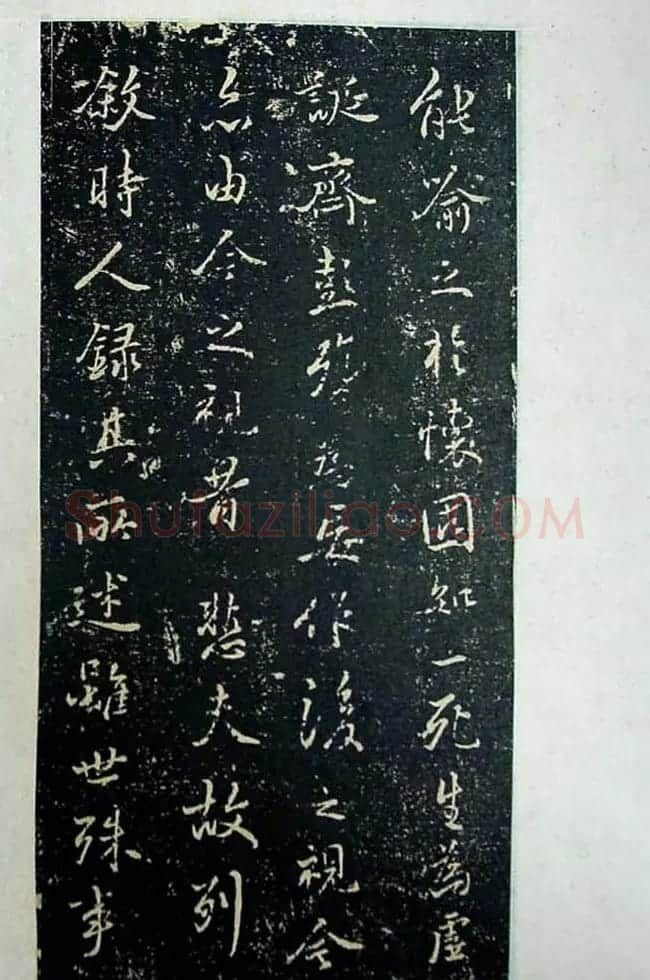 能喻之於懷固知一死生為虛
誕齊彭殤為妄作後之視今
亦由今之視昔悲夫故列
敘時人錄其所述雖世殊事
Shufaziliao.COM